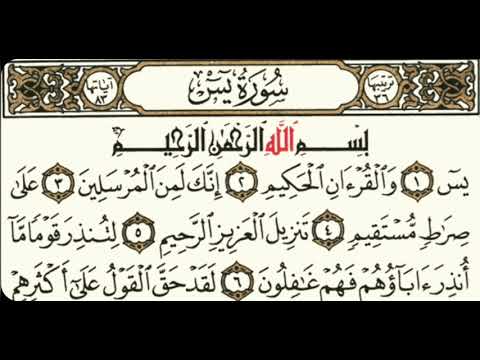 ترتيبها ٣٦
سُورَةُ يسٓ
آياتها ٨٣
بِسْمِ اللَّهِ الرَّحْمَٰنِ الرَّحِيمِ
يسٓ ١ وَالْقُرْءَانِ الْحَكِيمِ ٢ إِنَّكَ لَمِنَ الْمُرْسَلِينَ ٣ عَلَىٰ
صِرَٰطٍ مُّسْتَقِيمٍ ٤ تَنزِيلَ الْعَزِيزِ الرَّحِيمِ ٥ لِتُنذِرَ قَوْمًا مَّآ
أُنذِرَ ءَابَآؤُهُمْ فَهُمْ غَٰفِلُونَ ٦ لَقَدْ حَقَّ الْقَوْلُ عَلَىٰٓ أَكْثَرِهِمْ